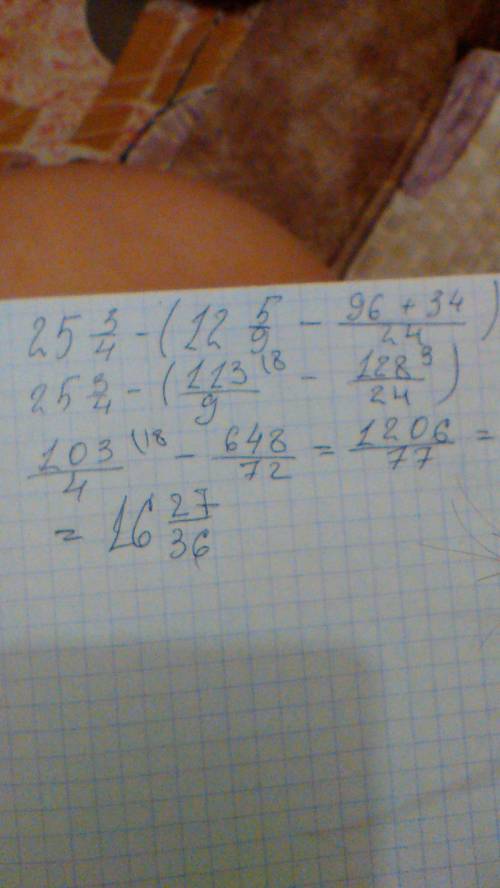 25 3/4 - (12 5/9 - (96 + 34)/24)
25 3/4 - (113/9 (8 - 128/24 3)
103/4 (18 - 648/72 = 1206/77 =
= 16 27/36